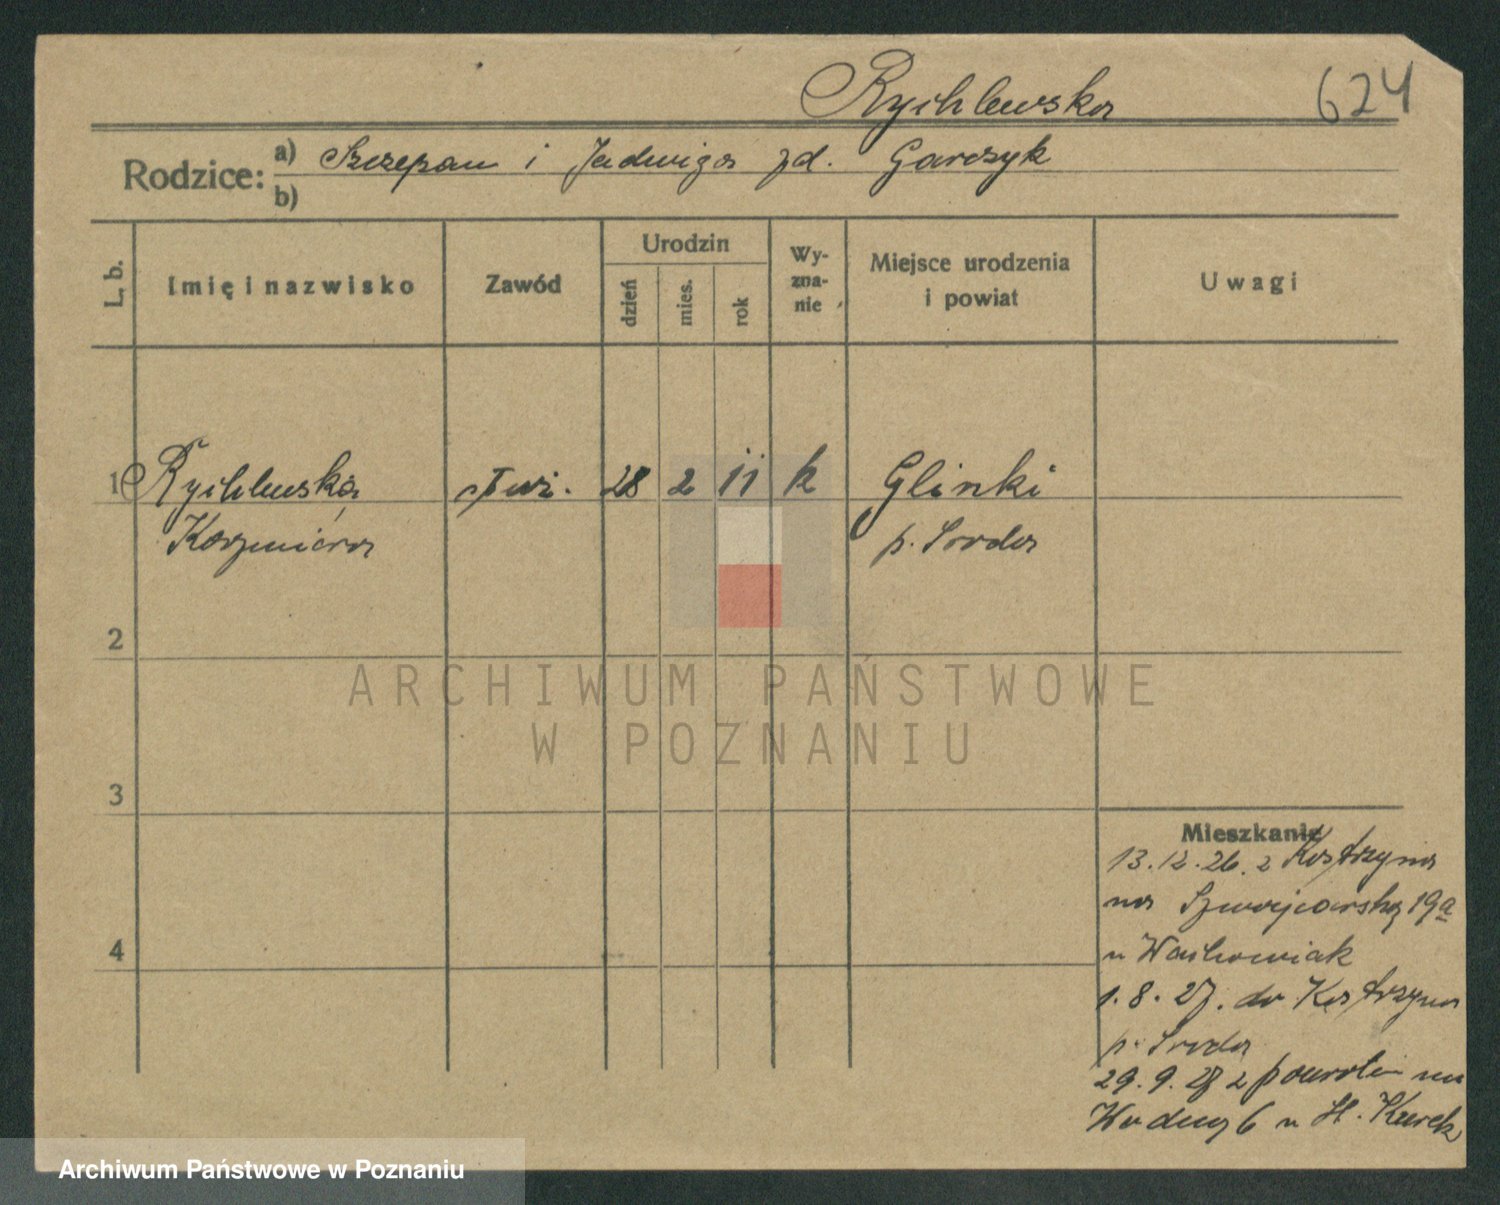 Rychlewska 624
Rodzice: a) Szczepan i Jadwiga zd. Garczyk
b)
L. b. Imię i nazwisko Zawód Urodzin dzień mies. rok Wy-zna-nie Miejsce urodzenia i powiat Uwagi
1 Rychlewska, służ. 28 2 11 k Glinki
Kazmiera p. Sroda
2
3
4
Mieszkanie
13.12.26. z Kostrzyna
na Szwajcarską 19a
u Wachowiak
1.8.27. do Kostrzyna
p. Sroda
29.9.27 z powrotem na
Wodną 6 u St. Kurek
ARCHIWUM PAŃSTWOWE
W POZNANIU
Archiwum Państwowe w Poznaniu